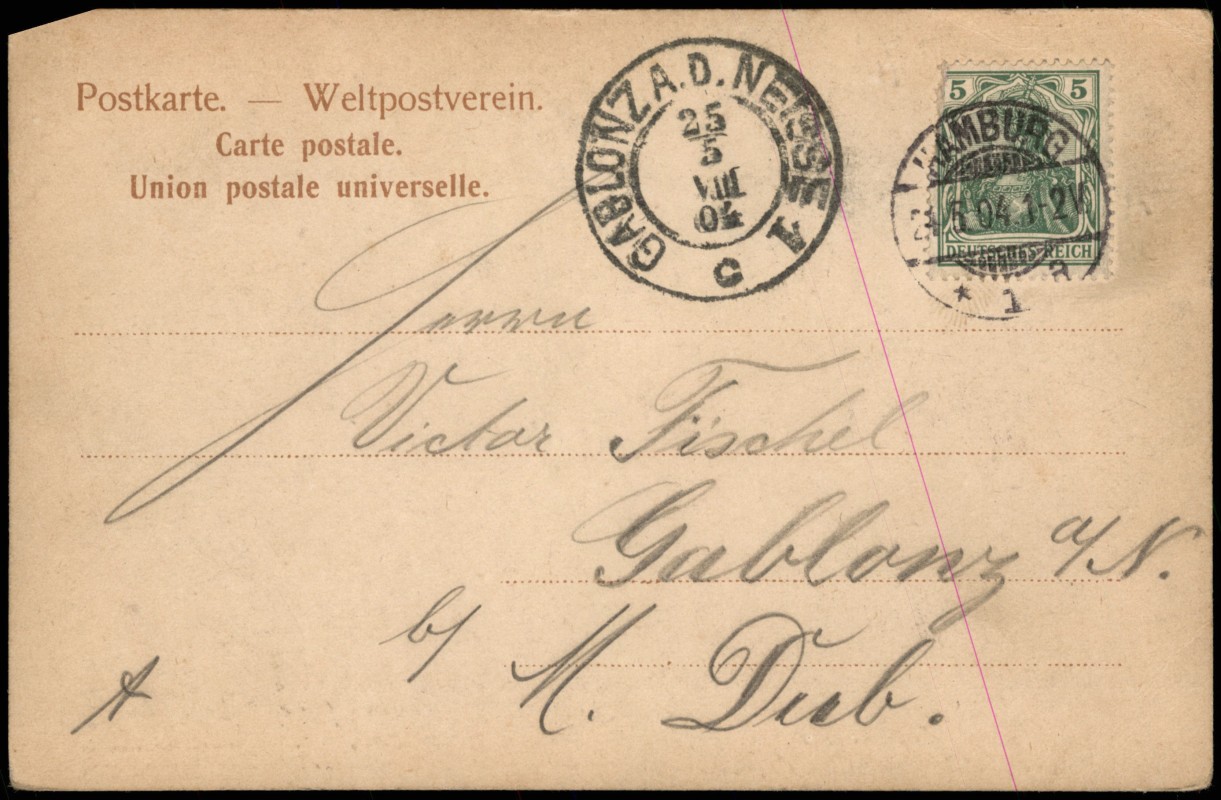 Postkarte. — Weltpostverein.
Carte postale.
Union postale universelle.
GABLONZ A. D. NEISSE
25
5
VIII
04
C A
5 5
DEUTSCHES REICH
HAMBURG
5 04. 1-2V
* 1
Herrn
Victor Fischel
Gablonz a/N.
b/ M. Dub.